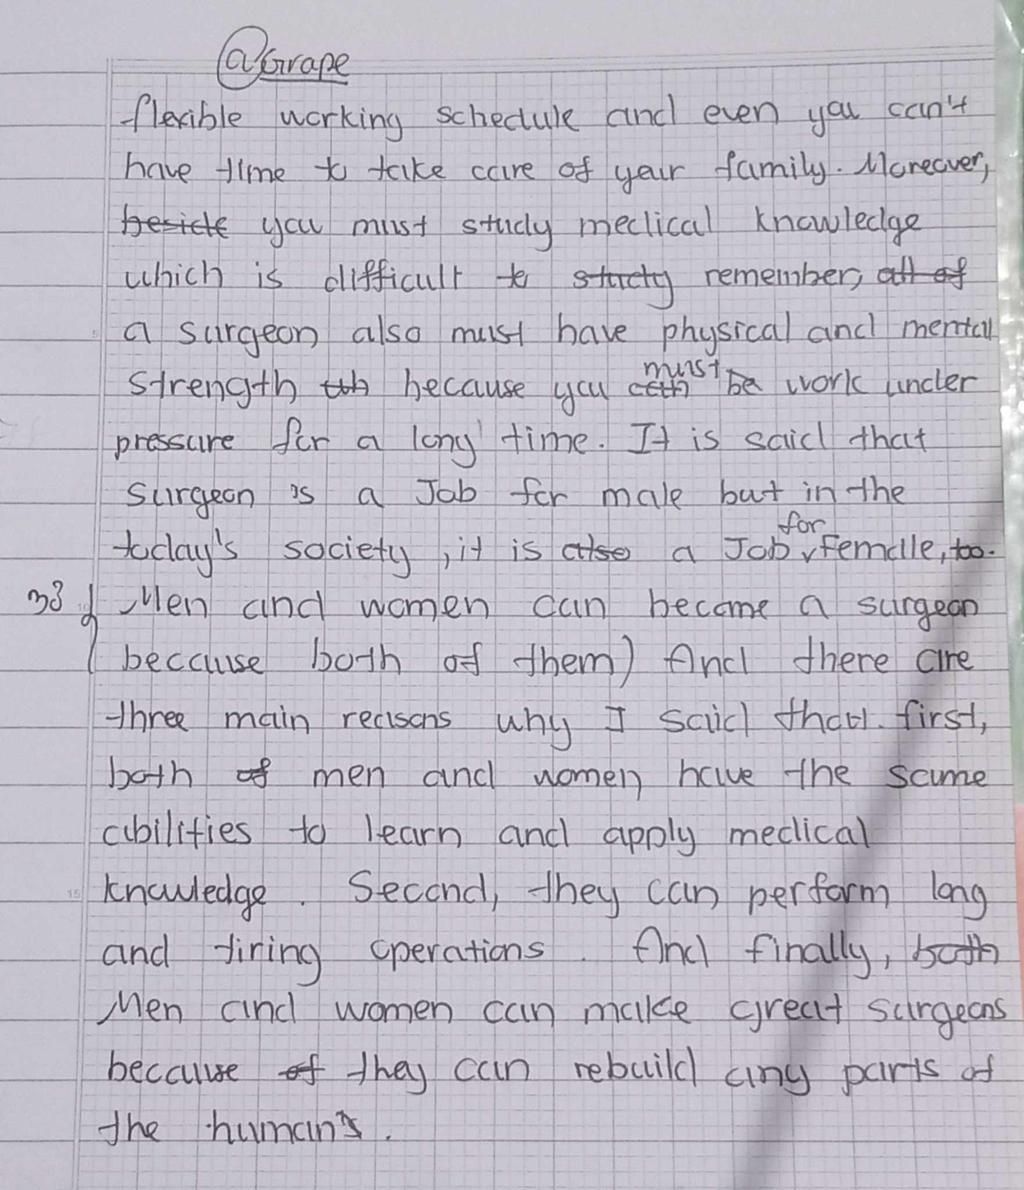 @Grape
flexible working schedule and even you can't
have time to take care of your family. Moreover,
beside you must study medical knowledge
which is difficult to study remember, all of
a surgeon also must have physical and mental
strength because you must be work under
pressure for a long time. It is said that
surgeon is a Job for male but in the
today's society, it is also a Job for Female, too.
Men and women can become a surgeon
because both of them) And there are
three main reasons why I said that. first,
both of men and women have the same
abilities to learn and apply medical
knowledge. Second, they can perform long
and tiring operations. And finally, both
Men and women can make great surgeons
because of they can rebuild any parts of
the human's.